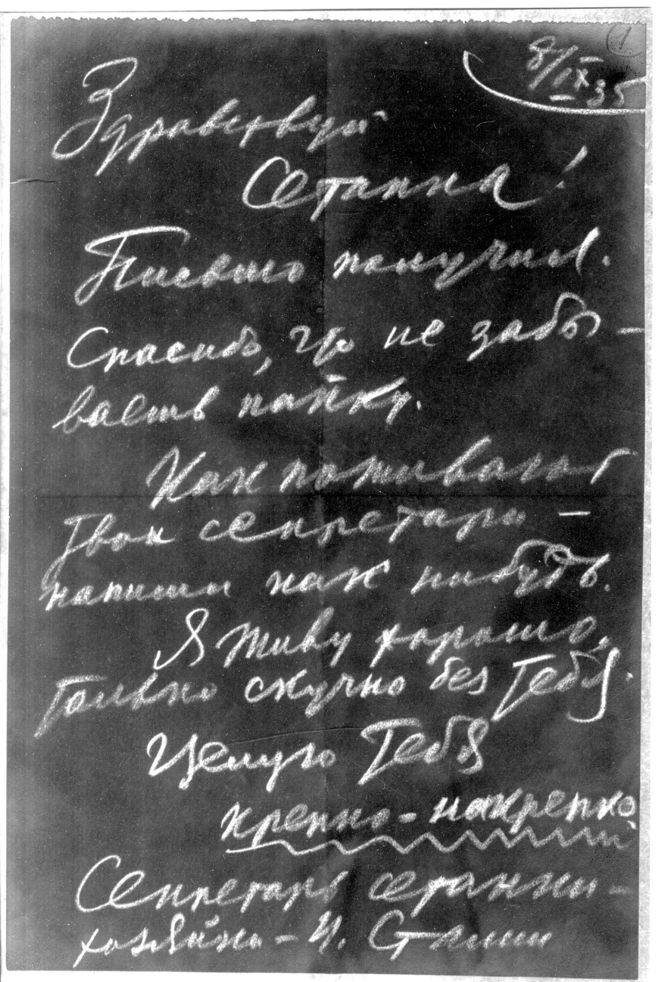 1
8/IX 35
Здравствуй
Сетанка!
Письмо получил.
Спасибо, что не забы-
ваешь папку.
Как поживают
твои секретари –
напиши как нибудь.
Я живу хорошо,
только скучно без тебя.
Целую тебя
крепко-накрепко
Секретарь сетанки-
хозяйки – И. Сталин